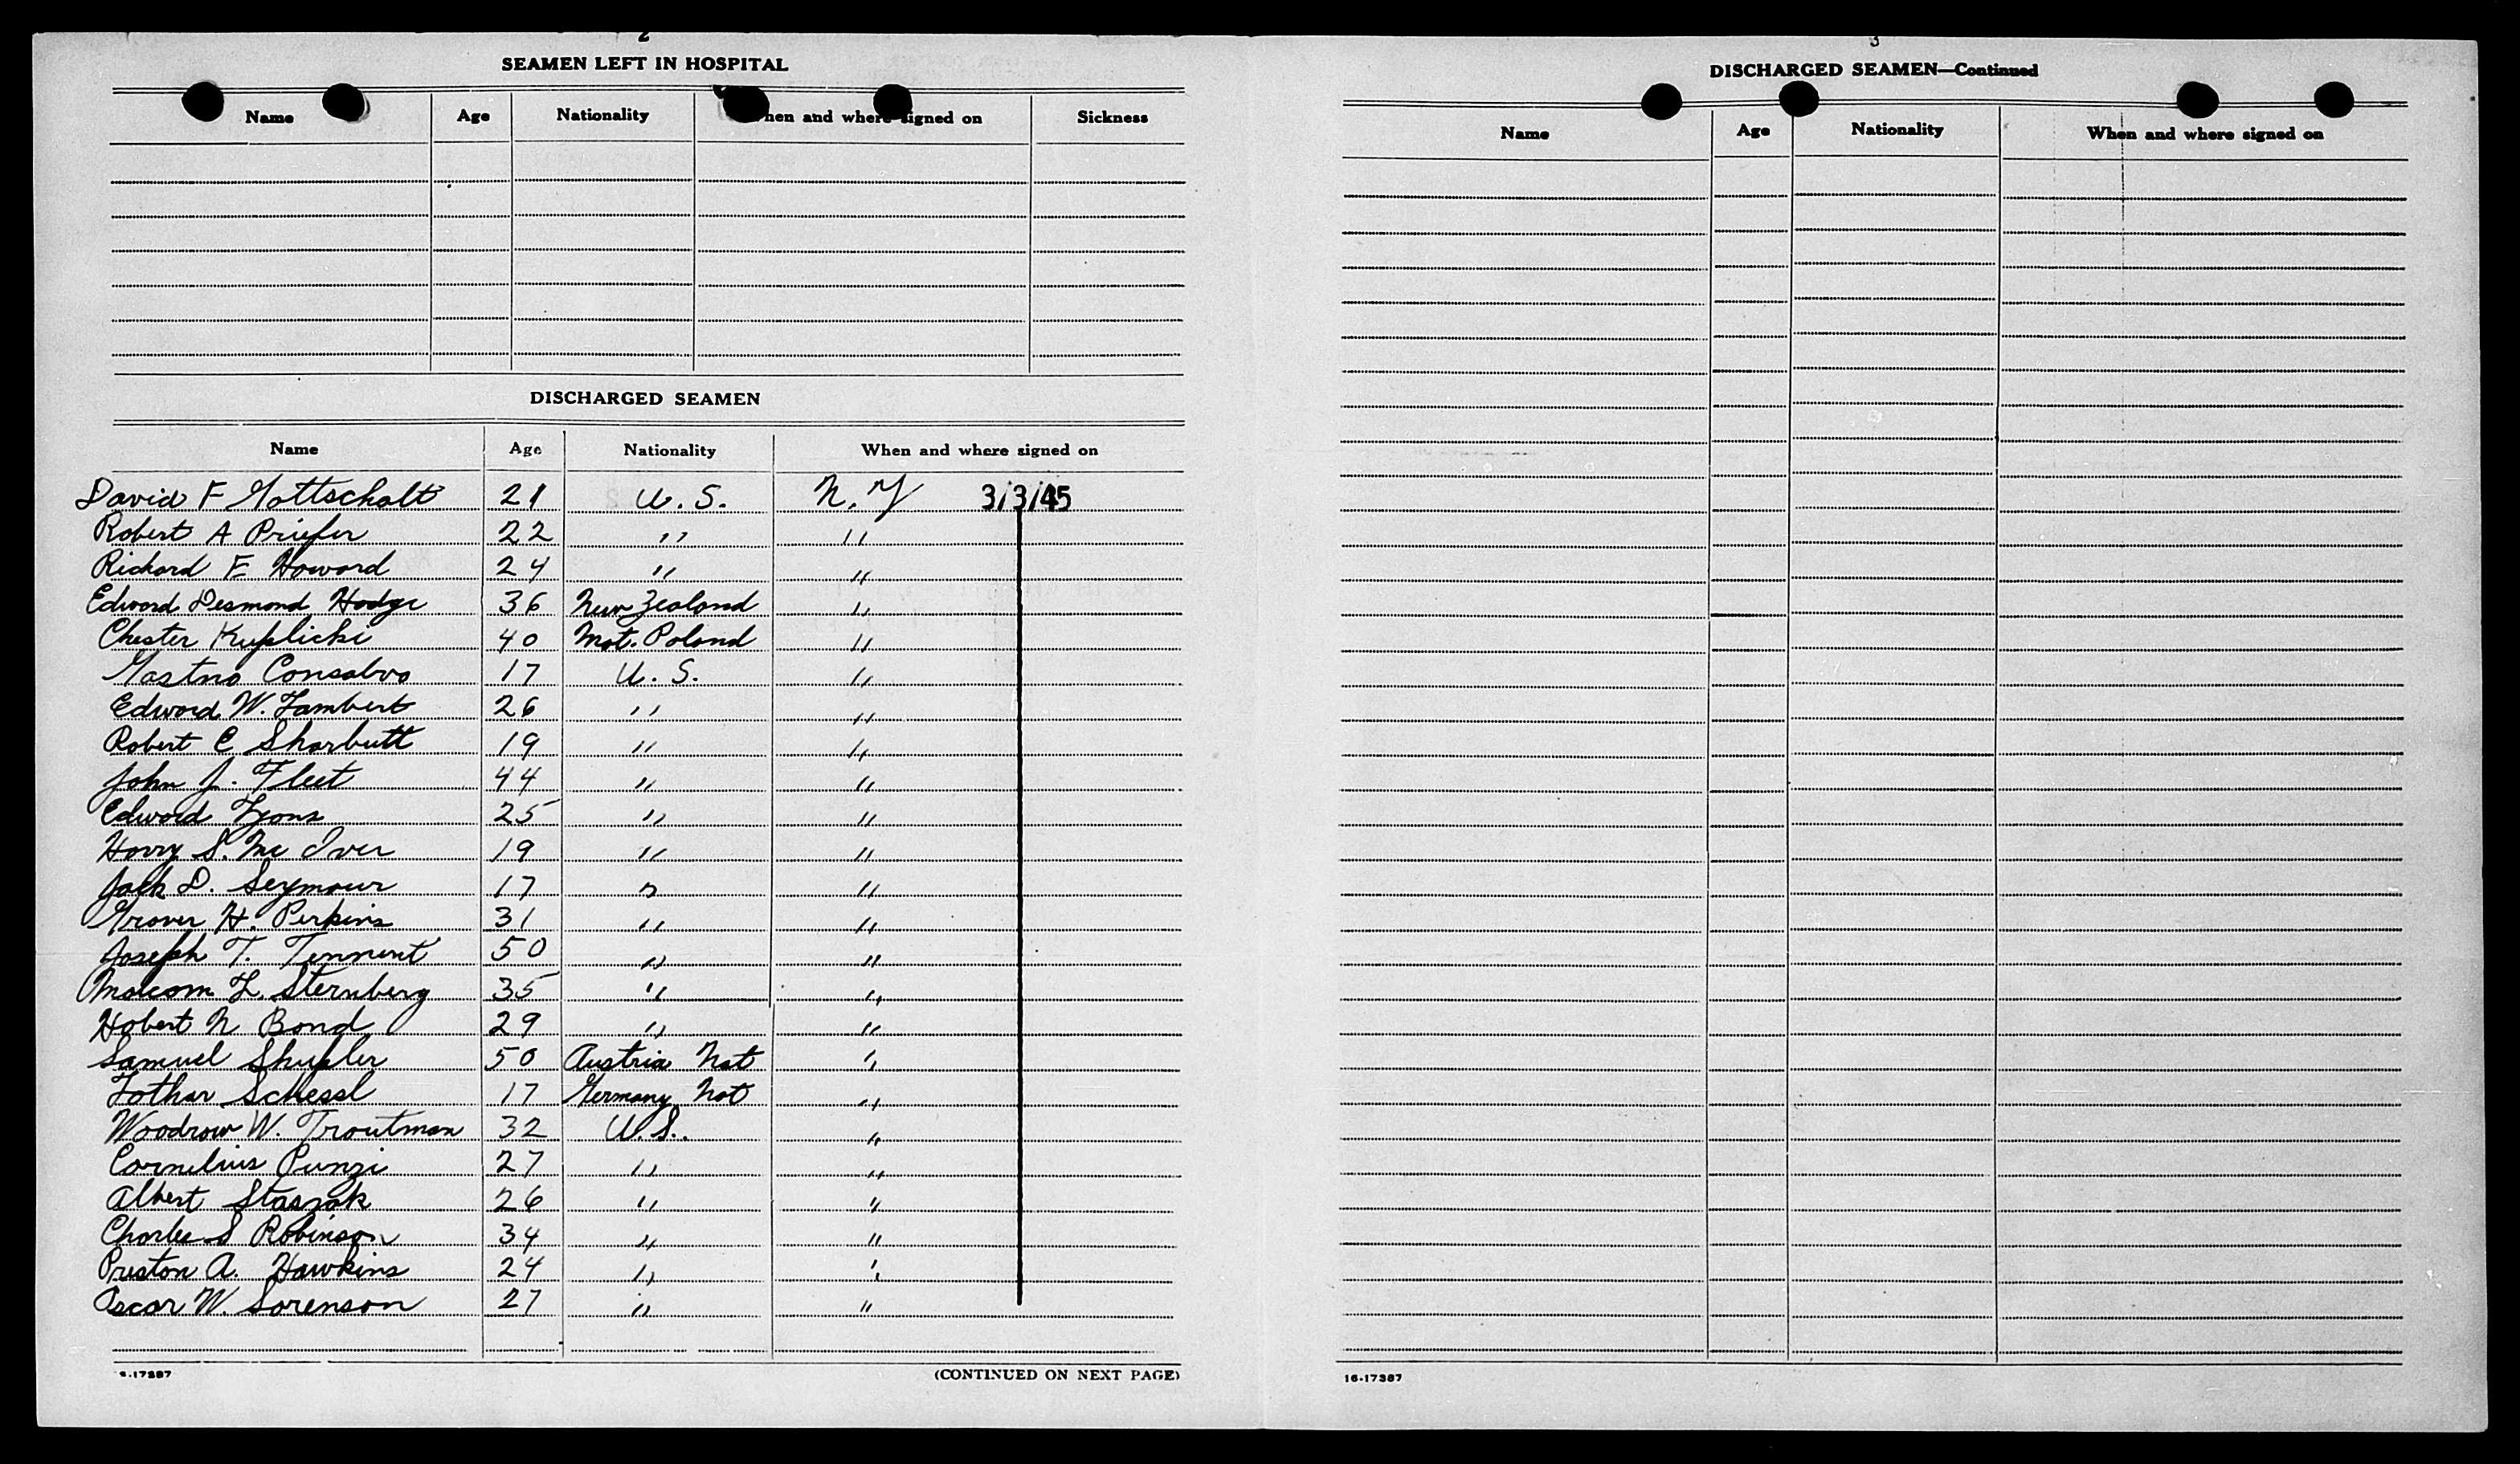 2
SEAMEN LEFT IN HOSPITAL
Name Age Nationality When and where signed on Sickness
DISCHARGED SEAMEN
Name Age Nationality When and where signed on
David F Gottschalt 21 U. S. N. Y 3/3/45
Robert A Priefer 22 " "
Richard E Howard 24 " "
Edward Desmond Hodge 36 New Zealand "
Chester Kuplicki 40 Nat. Poland "
Consalvo 17 U. S. "
Edward W. Lambert 26 " "
Robert C Sharbutt 19 " "
John J. Fleet 44 " "
Edward Lyons 25 " "
Harry S. Mc Iver 19 " "
Jack D. Seymour 17 " "
Grover H. Perkins 31 " "
Joseph T. Tennent 50 " "
Malcom L. Sternberg 35 " "
Hobert N Bond 29 " "
Samuel Shupler 50 Austria Nat "
Lothar Schessl 17 Germany Nat "
Woodrow W. Troutman 32 U.S. "
Cornelius Punzi 27 " "
Albert Staszak 26 " "
Charles S Robinson 34 " "
Preston A. Hawkins 24 " "
Oscar W. Sorenson 27 " "
(CONTINUED ON NEXT PAGE)
3
DISCHARGED SEAMEN—Continued
Name Age Nationality When and where signed on
16-17387